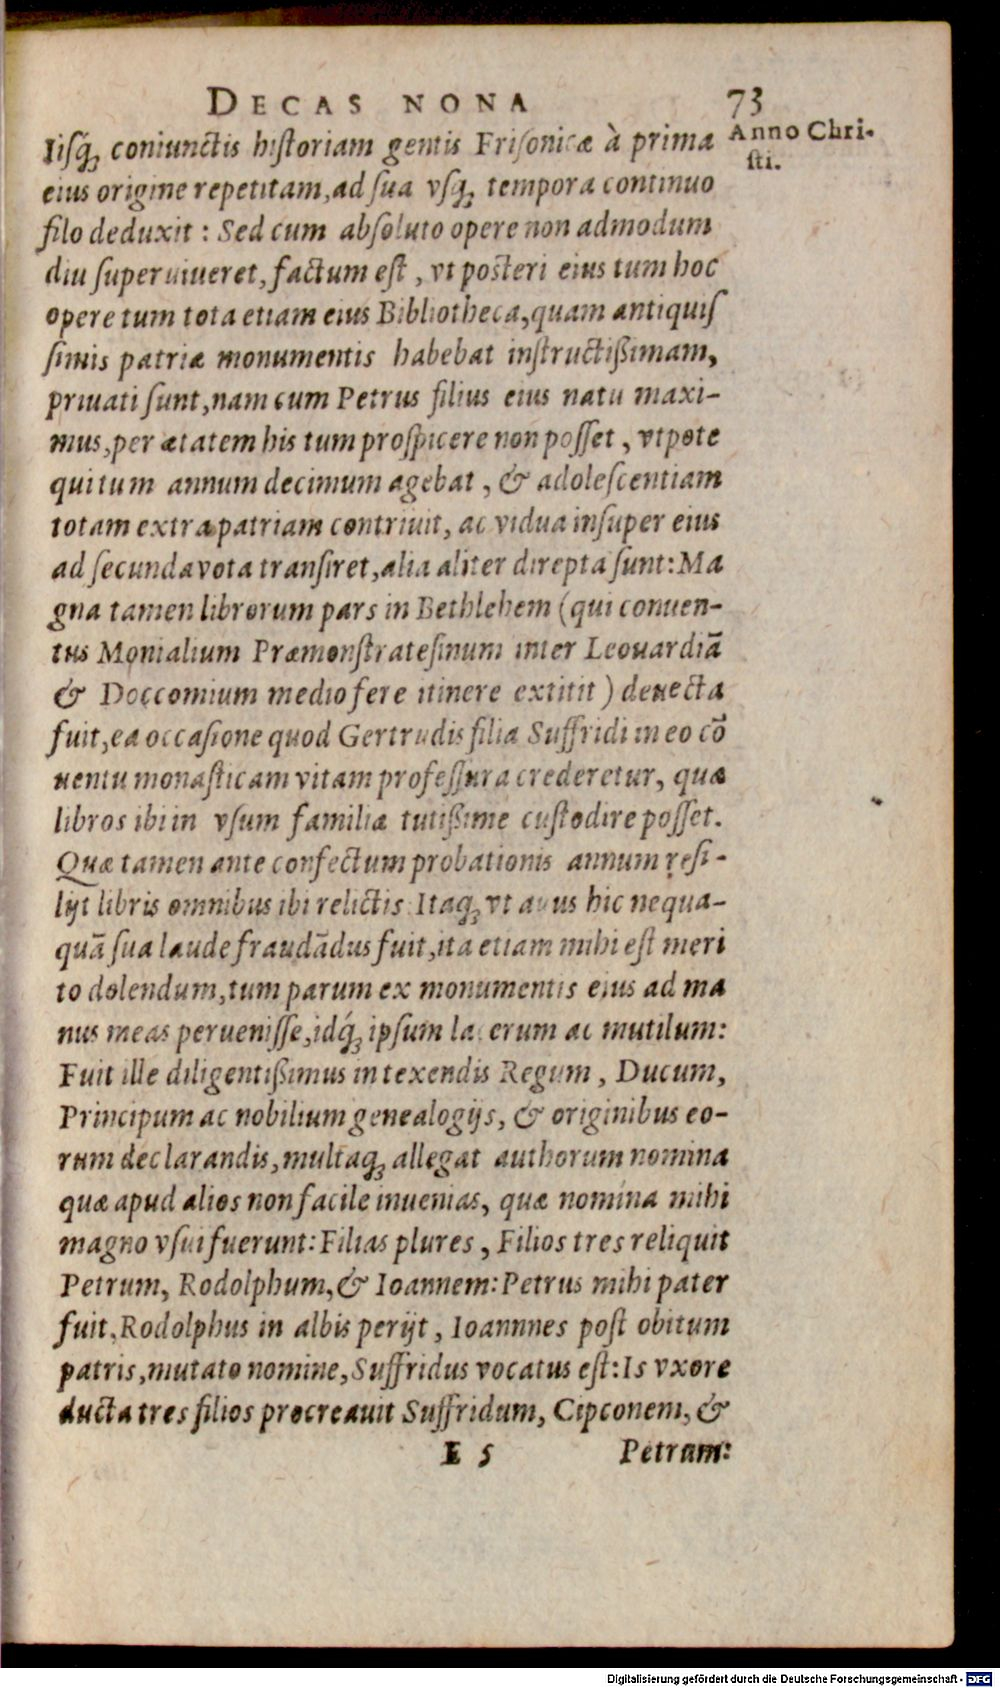 DECAS NONA 73
Anno Chri-
sti.
Iisq́; coniunctis historiam gentis Frisonicæ à prima
eius origine repetitam, ad sua vsq; tempora continuo
filo deduxit : Sed cum absoluto opere non admodum
diu superuiueret, factum est , vt posteri eius tum hoc
opere tum tota etiam eius Bibliotheca, quam antiquis
simis patriæ monumentis habebat instructißimam,
priuati sunt, nam cum Petrus filius eius natu maxi-
mus, per ætatem his tum prospicere non posset , vtpote
qui tum annum decimum agebat , & adolescentiam
totam extra patriam contriuit, ac vidua insuper eius
ad secunda vota transiret, alia aliter direpta sunt: Ma
gna tamen librorum pars in Bethlehem (qui conuen-
tus Monialium Præmonstratesinum inter Leouardiā
& Doccomium medio fere itinere extitit ) deuecta
fuit, ea occasione quod Gertrudis filia Suffridi in eo cō
uentu monasticam vitam professura crederetur, quæ
libros ibi in vsum familiæ tutißime custodire posset.
Quæ tamen ante confectum probationis annum resi-
lijt libris omnibus ibi relictis Itaq; vt auus hic nequa-
quā sua laude fraudādus fuit, ita etiam mihi est meri
to dolendum, tum parum ex monumentis eius ad ma
nus meas peruenisse, idq́; ipsum lacerum ac mutilum:
Fuit ille diligentißimus in texendis Regum , Ducum,
Principum ac nobilium genealogijs, & originibus eo-
rum declarandis, multaq; allegat authorum nomina
quæ apud alios non facile inuenias, quæ nomina mihi
magno vsui fuerunt: Filias plures , Filios tres reliquit
Petrum, Rodolphum, & Ioannem: Petrus mihi pater
fuit, Rodolphus in albis perijt , Ioannnes post obitum
patris, mutato nomine, Suffridus vocatus est: Is vxore
ducta tres filios procreauit Suffridum, Cipconem, &
E 5 Petrum:
Digitalisierung gefördert durch die Deutsche Forschungsgemeinschaft - DFG